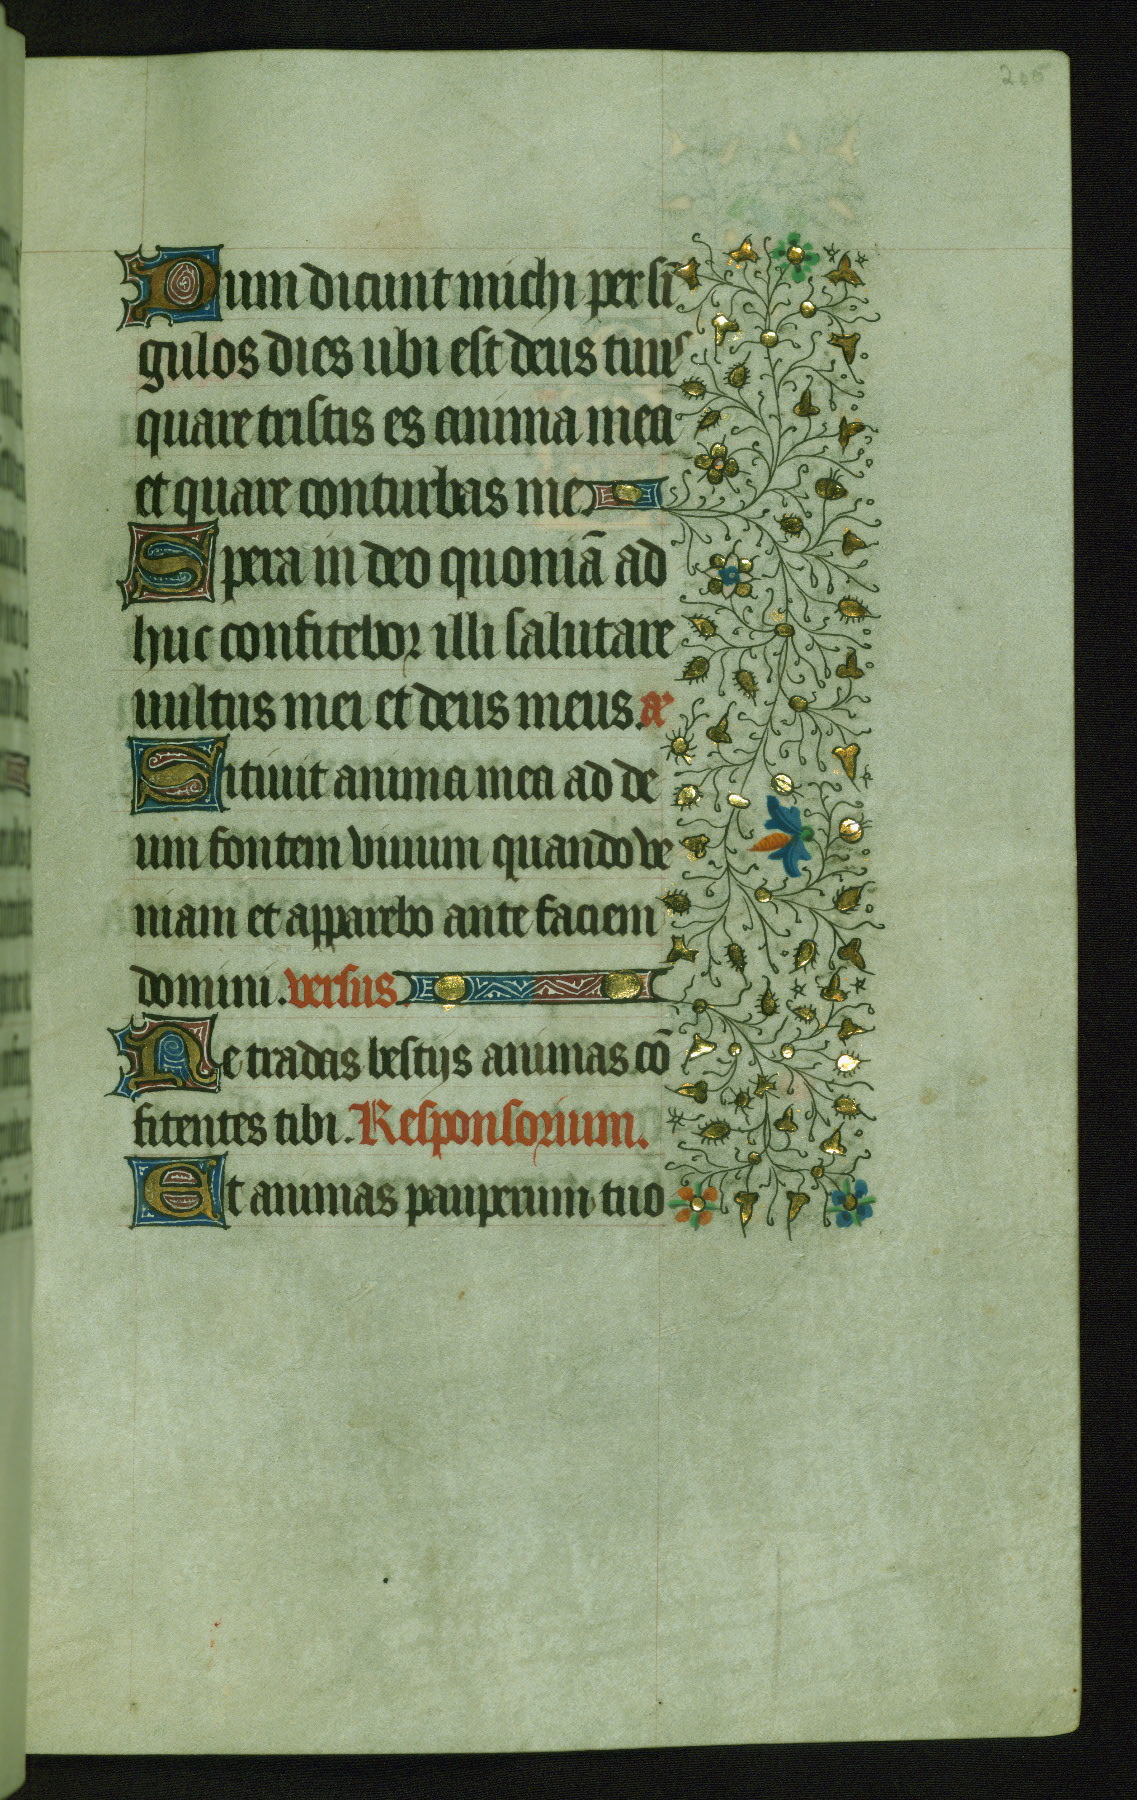 205
Dum dicunt michi per sī
gulos dies ubi est deus tuus
quare tristis es anima mea
et quare conturbas me
Spera in deo quoniā ad
huc confitebor illi salutare
uultus mei et deus meus. añ
Sitiuit anima mea ad de
um fontem viuum quando ve
niam et apparebo ante faciem
domini. versus.
Ne tradas bestijs animas cō
fitentes tibi. Responsorium.
Et animas pauperum tuo